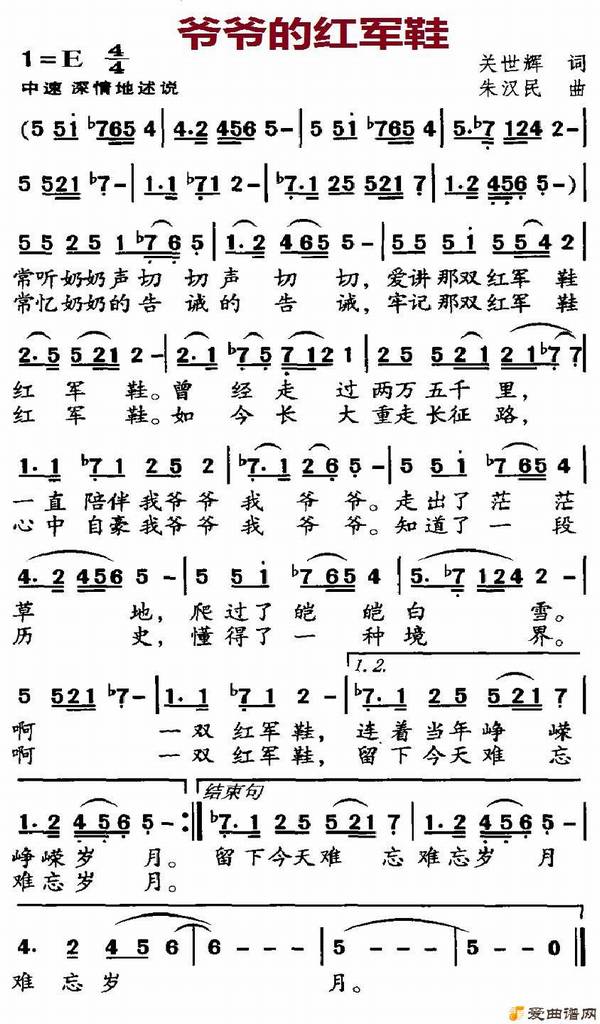 爷爷的红军鞋
1=E 4/4
关世辉 词
中速 深情地述说
朱汉民 曲
(5 5 5 i ♭7 6 5 4 | 4. 2 4 5 6 5 - | 5 5 i ♭7 6 5 4 | 5. ♭7 1 2 4 2 - |
5 5 2 1 ♭7 - | 1. 1 ♭7 1 2 - | ♭7. 1 2 5 5 2 1 7 | 1. 2 4 5 6 5 - )
5 5 2 5 1 ♭7 6 5 | 1. 2 4 6 5 5 - | 5 5 5 i 5 5 4 2 |
常听奶奶声切切声切切，爱讲那双红军鞋
常忆奶奶的告诫的告诫，牢记那双红军鞋
2. 5 5 2 1 2 - | 2. 1 ♭7 5 7 1 2 1 | 2 5 5 2 1 2 1 ♭7 7 |
红军鞋。曾经走过两万五千里，
红军鞋。如今长大重走长征路，
1. 1 ♭7 1 2 5 2 | ♭7. 1 2 6 5 - | 5 5 i ♭7 6 5 4 |
一直陪伴我爷爷我爷爷。走出了茫茫
心中自豪我爷爷我爷爷。知道了一段
4. 2 4 5 6 5 - | 5 5 i ♭7 6 5 4 | 5. ♭7 1 2 4 2 - |
草地，爬过了皑皑白雪。
历史，懂得了一种境界。
1. 2.
5 5 2 1 ♭7 - | 1. 1 ♭7 1 2 - | ♭7. 1 2 5 5 2 1 7 |
啊一双红军鞋，连着当年峥嵘
啊一双红军鞋，留下今天难忘
结束句
1. 2 4 5 6 5 - :‖ ♭7. 1 2 5 5 2 1 7 | 1. 2 4 5 6 5 - |
峥嵘岁月。留下今天难忘难忘岁月
难忘岁月。
4. 2 4 5 6 | 6 - - - | 5 - - - | 5 - - - ‖
难忘岁月。
爱曲谱网